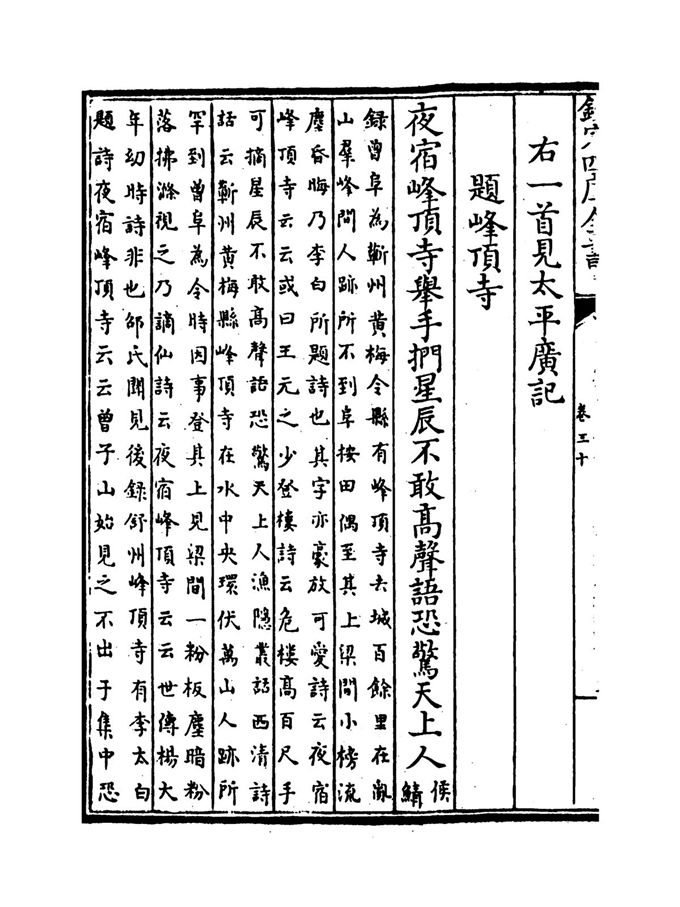 欽定四庫全書
卷三十
右一首見太平廣記
題峰頂寺
夜宿峰頂寺舉手捫星辰不敢高聲語恐驚天上人侯鯖
錄曾阜為蘄州黄梅令縣有峰頂寺去城百餘里在亂
山羣峰間人跡所不到阜按田偶至其上梁間小榜流
塵昏晦乃李白所題詩也其字亦豪放可愛詩云夜宿
峰頂寺云云或曰王元之少登樓詩云危樓高百尺手
可摘星辰不敢高聲語恐驚天上人漁隱叢話西清詩
話云蘄州黄梅縣峰頂寺在水中央環伏萬山人跡所
罕到曾阜為令時因事登其上見梁間一粉板塵暗粉
落拂滌視之乃謫仙詩云夜宿峰頂寺云云世傳楊大
年幼時詩非也邵氏聞見後錄舒州峰頂寺有李太白
題詩夜宿峰頂寺云云曾子山始見之不出于集中恐